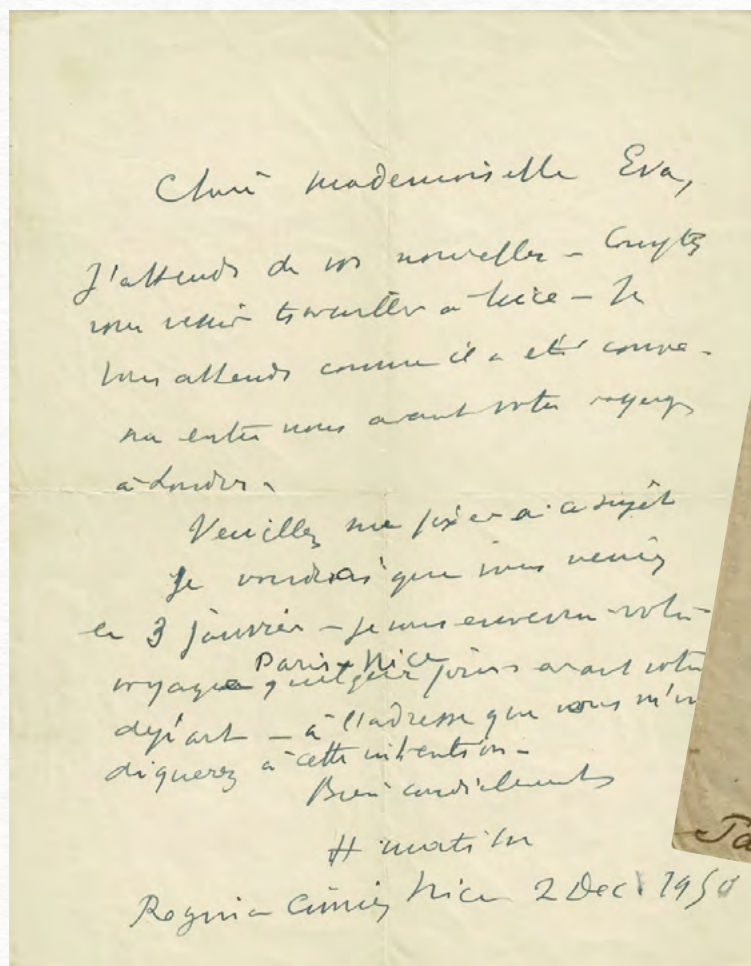 Chère Mademoiselle Eva,
J'attends de vos nouvelles – Comptez
vous venir travailler à Nice – Je
vous attends comme il a été conve-
nu entre nous avant votre voyage
à Londres.
Veuillez me fixer à ce sujet
Je voudrais que vous veniez
le 3 janvier – je vous enverrai votre
Paris Nice
voyage quelques jours avant votre
départ – à l'adresse que vous m'in
diquerez à cette intention –
Bien cordialement
H Matisse
Regina Cimiez Nice 2 Dec. 1950